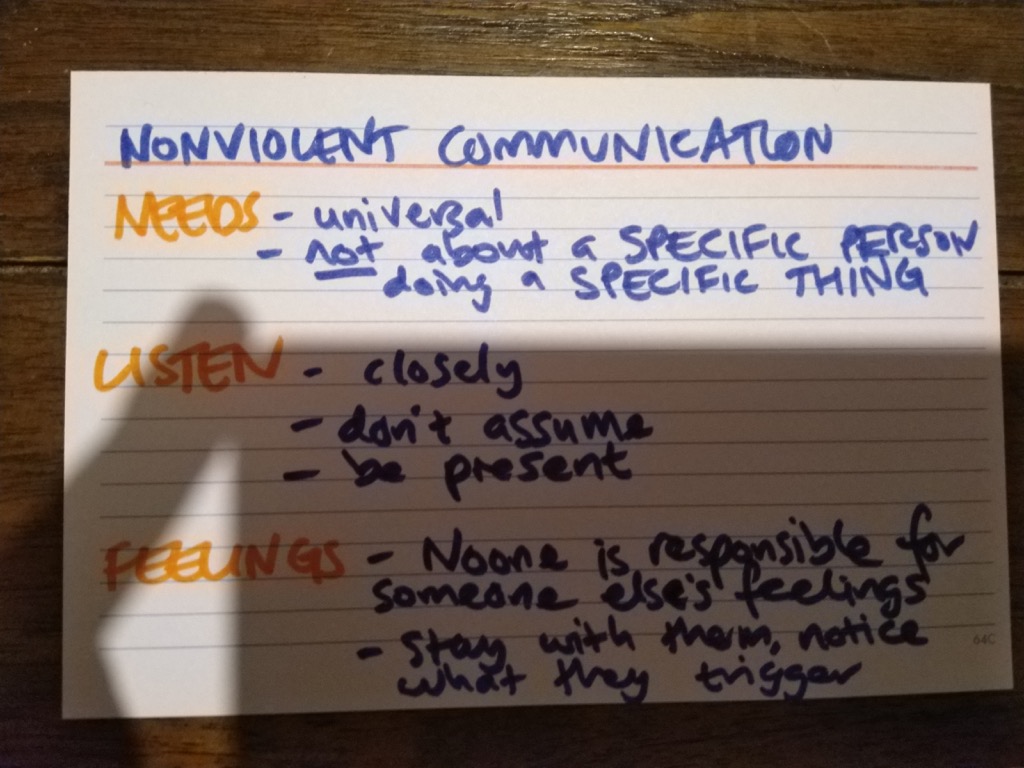 NONVIOLENT COMMUNICATION
NEEDS - universal
- not about a SPECIFIC PERSON
doing a SPECIFIC THING
LISTEN - closely
- don't assume
- be present
FEELINGS - Noone is responsible for
someone else's feelings
- stay with them, notice
what they trigger
64C